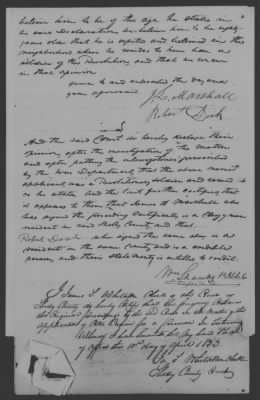 believe him to be of the age he states in
his said Declaration he believes him to be eighty
years old that he is reputed and believed in the
neighborhood where he resides to have been a
soldier of the Revolution and that he concurs
in that opinion
Sworn to and subscribed the day and
year aforesaid
Marshall
Robert Doak
And the said Court do hereby declare their
opinion after the investigation of the matter
and after putting the interrogatories prescribed
by the War Department, that the above named
applicant was a Revolutionary soldier and served
as he states. And the Court further certifies that
it appears to them that James Marshall who
has signed the preceding Certificate is a Clergyman
resident in Shelby County and that
Robert Doak who signed the same also is a
resident in the same County and is a credible
person, and that their statement is entitled to credit.
I James S. Whitaker Clerk of the
Shelby County do hereby Certify that the foregoing Contains
the Original proceedings of the said Court in the Matter of the
Application of for a Pension In Testimony
Whereof I have hereunto set my hand &
of office this day of April 1833
Ja. S. Whitaker Clerk
Shelby County Court